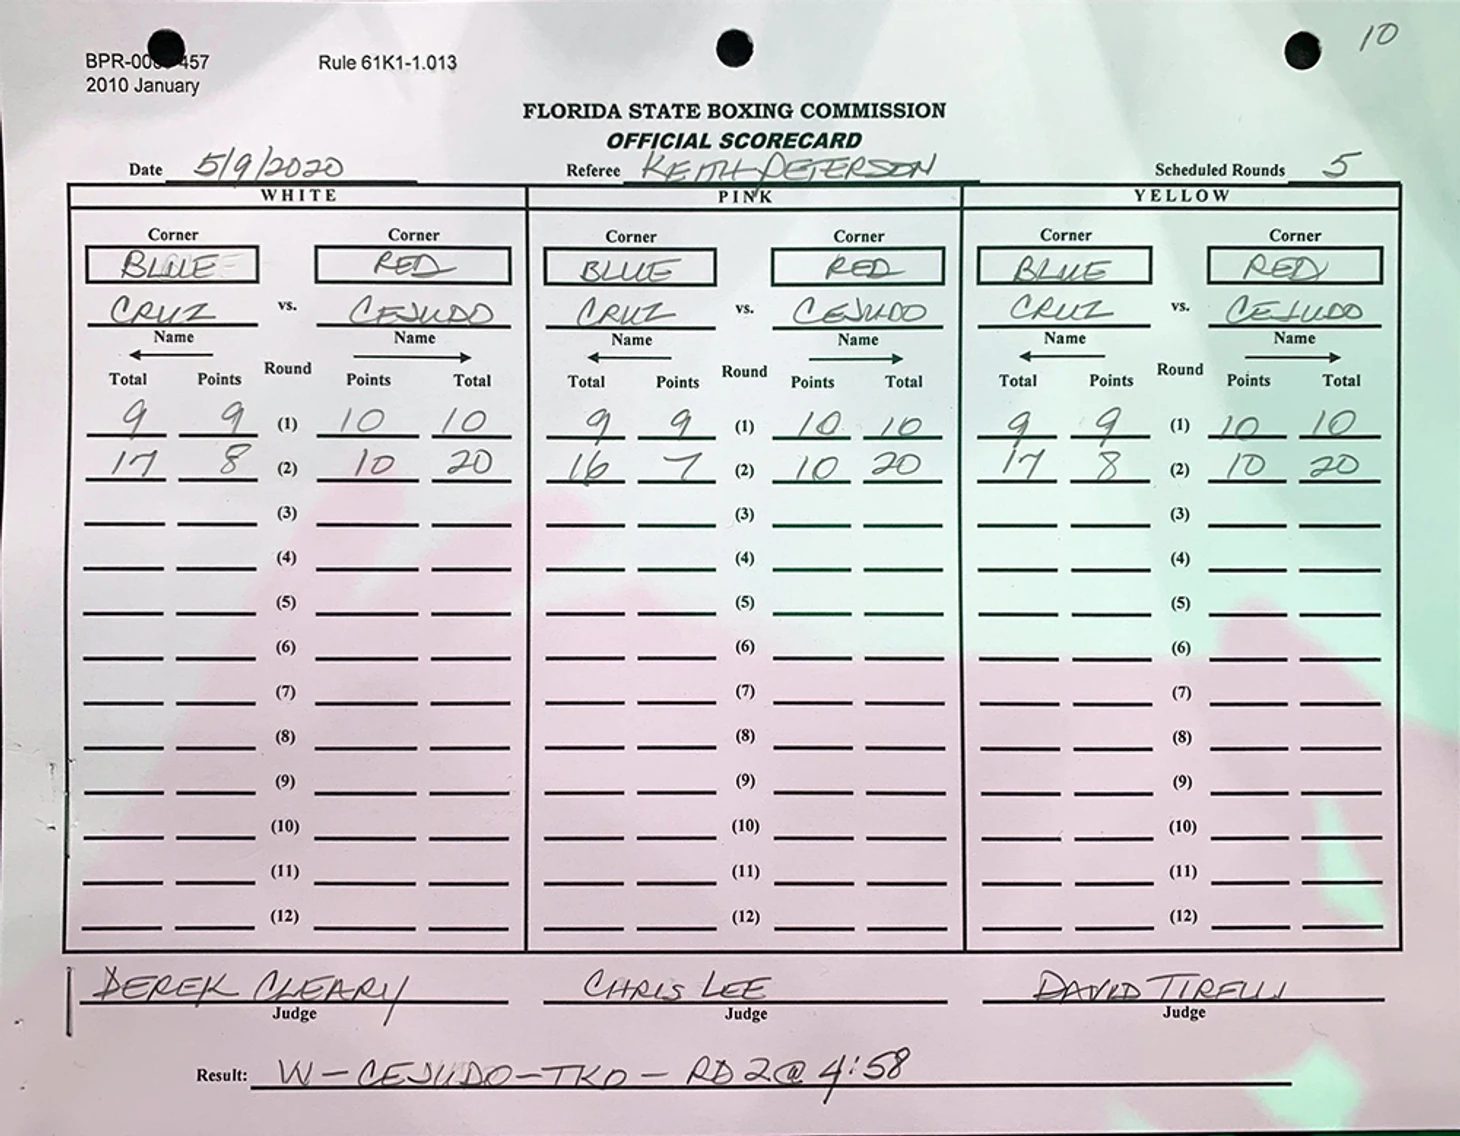 10
BPR-00 457 Rule 61K1-1.013
2010 January
FLORIDA STATE BOXING COMMISSION
OFFICIAL SCORECARD
Date 5/9/2020 Referee KEITH PETERSON Scheduled Rounds 5
WHITE PINK YELLOW
Corner Corner Corner Corner Corner Corner
BLUE RED BLUE RED BLUE RED
CRUZ vs. CEJUDO CRUZ vs. CEJUDO CRUZ vs. CEJUDO
Name Name Name Name Name Name
Total Points Round Points Total Total Points Round Points Total Total Points Round Points Total
9 9 (1) 10 10 9 9 (1) 10 10 9 9 (1) 10 10
17 8 (2) 10 20 16 7 (2) 10 20 17 8 (2) 10 20
(3) (3) (3)
(4) (4) (4)
(5) (5) (5)
(6) (6) (6)
(7) (7) (7)
(8) (8) (8)
(9) (9) (9)
(10) (10) (10)
(11) (11) (11)
(12) (12) (12)
DEREK CLEARY CHRIS LEE DAVID TIRELLI
Judge Judge Judge
Result: W-CEJUDO-TKO- RD2@ 4:58